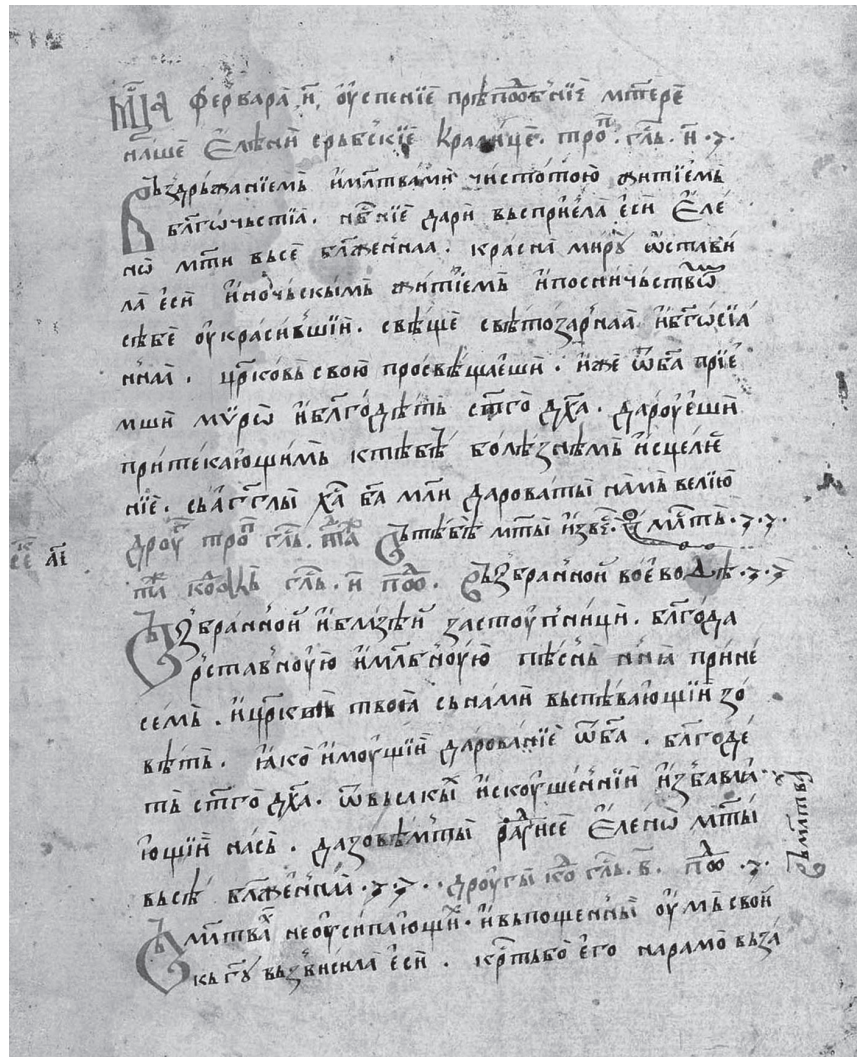 мⷭ҇ца феврара н҃, оуспенїе прѣпⷣобнїе мт҃ере
наше Елѣни срьбскїе кралице. троⷫ. глⷭ҇ь. н҃.
Въздрьжанїемь и мл҃твами чистотою житїемь
благочьстїа. нб҃нїе дари въсприела еси Еле
но мт҃и въсе блаженнаа. краснаа миру ѡстави
ла еси иночьскымь житїемь и посничьствѡⷨ
себе оукрасившїи. свѣще свѣтозарнаа и бг҃осїа
ннаа. црк҃овь свою просвѣщаеши. иже ѿ ба҃ прїе
мши мѵро и благодѣть ст҃го дх҃а. дароуеши
притекающимь къ тѣбѣ болѣзнемь исцелѥ
нїе. сь агг҃лы ха҃ ба҃ моли даровати намь велїю
дроуⷢ троⷫ глⷭ҇ь. Въ тебѣ мт҃и извѣⷭ. мл҃ть.
глⷭ҇ь. н҃ поⷣ. Възбранной воеводѣ.
Възбранной и близѣи застоупници. благода
рставноую и мл҃бноую пѣснь ниⷩ҇а прине
семь. и црк҃вь твоа сь нами въспѣвающїи зо
вѣть. ꙗко имоущїи дарованїе ѿ ба҃. благоде
ть ст҃го дх҃а. ѿ въсакыⷯ искоушеннїи избавла
ющїи нась. да зовѣмь ти раⷣуисе Елено мт҃и
въсѣ блаженнаа. дроугы коⷣ глⷭ҇ь. в҃. поⷣ
Въ мл҃тваⷯ неоусипающи. и въпощеннїи оумь свой
къ гу҃ възвисила еси. крⷭ҇ть бо его на рамо възá
Въ мл҃тваⷯ